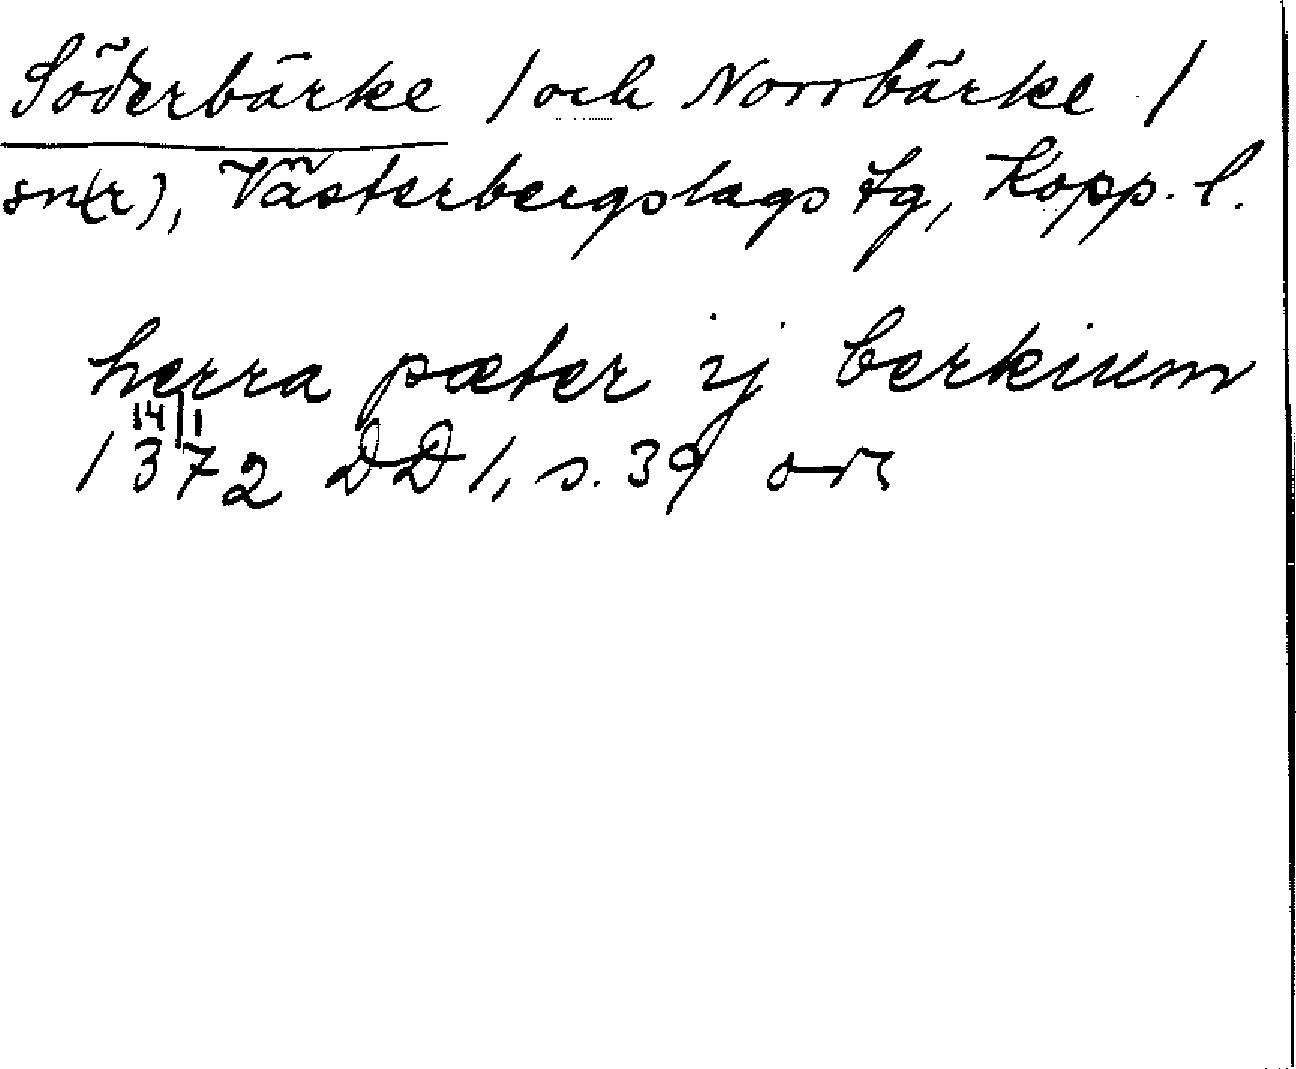 Söderbärke /och Norrbärke /
sn(r), Västerbergslags tg, Kopp. l.
herra pæter ij berkium
14/1
1372 DD 1, s. 39 or